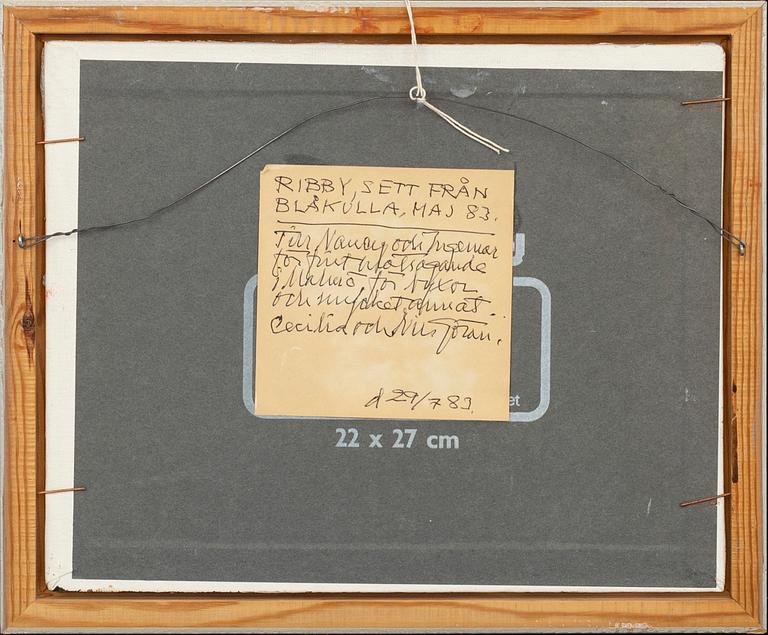 RIBBY, SETT FRÅN
BLÅKULLA, MAJ 83.
Till Nancy och Ingemar
för fint
för
och mycket annat.
Cecilia och Nils Göran.
d 29/7 83.
et
22 x 27 cm